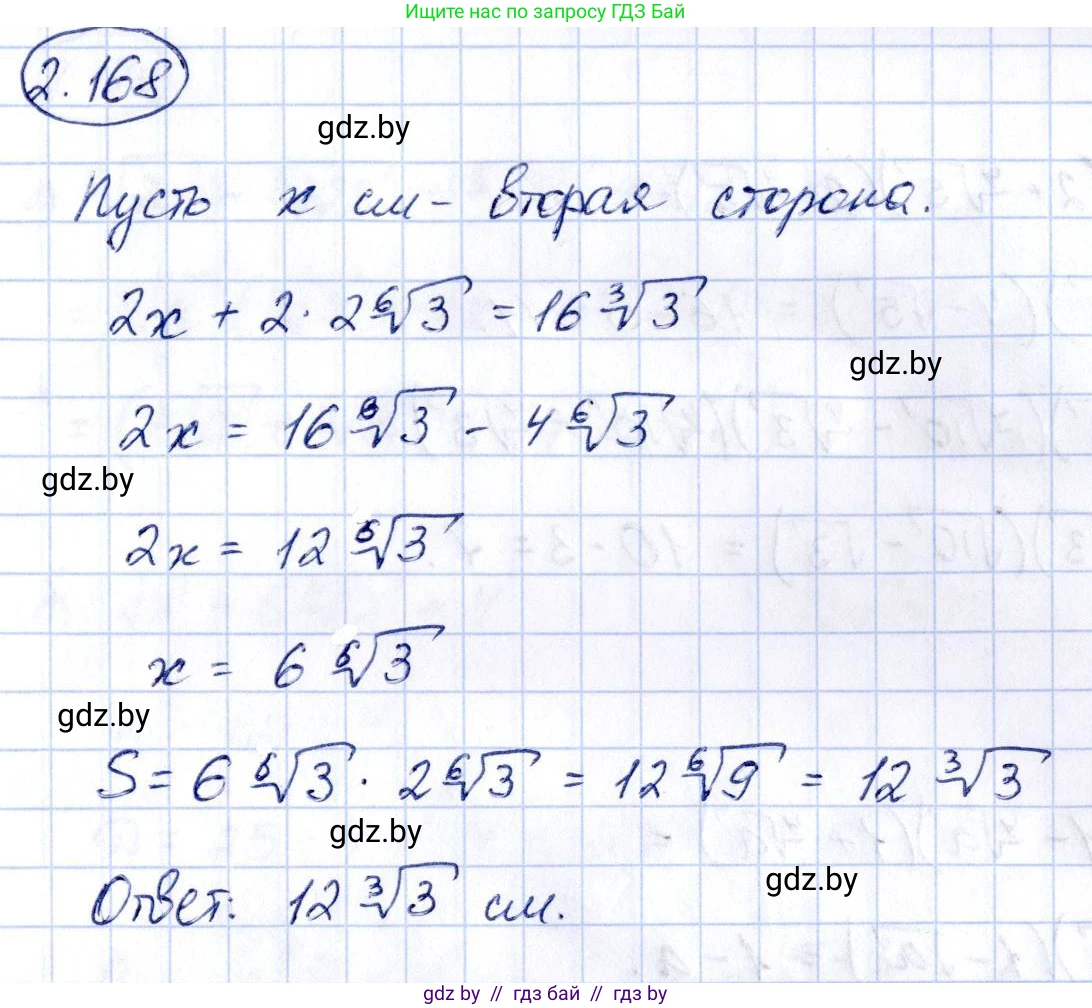 Ищите нас по запросу ГДЗ Бай
2.168
gdz.by
Пусть x см - вторая сторона.
2x + 2 · 2⁶√3 = 16 ³√3
gdz.by
2x = 16 ⁶√3 - 4 ⁶√3
gdz.by
2x = 12 ⁶√3
x = 6 ⁶√3
gdz.by
S = 6 ⁶√3 · 2 ⁶√3 = 12 ⁶√9 = 12 ³√3
gdz.by
gdz.by
Ответ: 12 ³√3 см.
gdz.by // гдз бай // гдз by